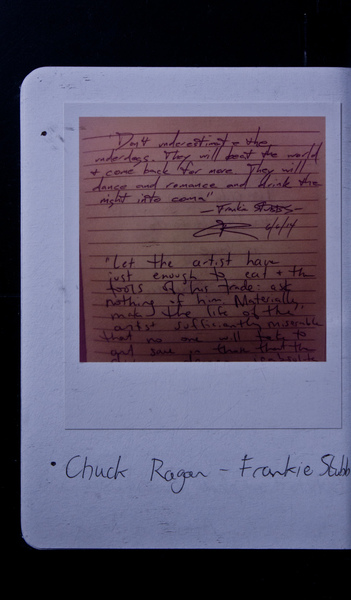 "Don't underestimate the
underdogs. They will beat the world
+ come back for more. They will
dance and romance and drink the
night into coma"
- Frankie Stubbs -
6/6/14
"Let the artist have
just enough to eat + the
tools of his trade: ask
nothing of him. Materially,
make the life of the
artist sufficiently miserable
that no one will take to
those that the
• Chuck Ragan - Frankie Stubb